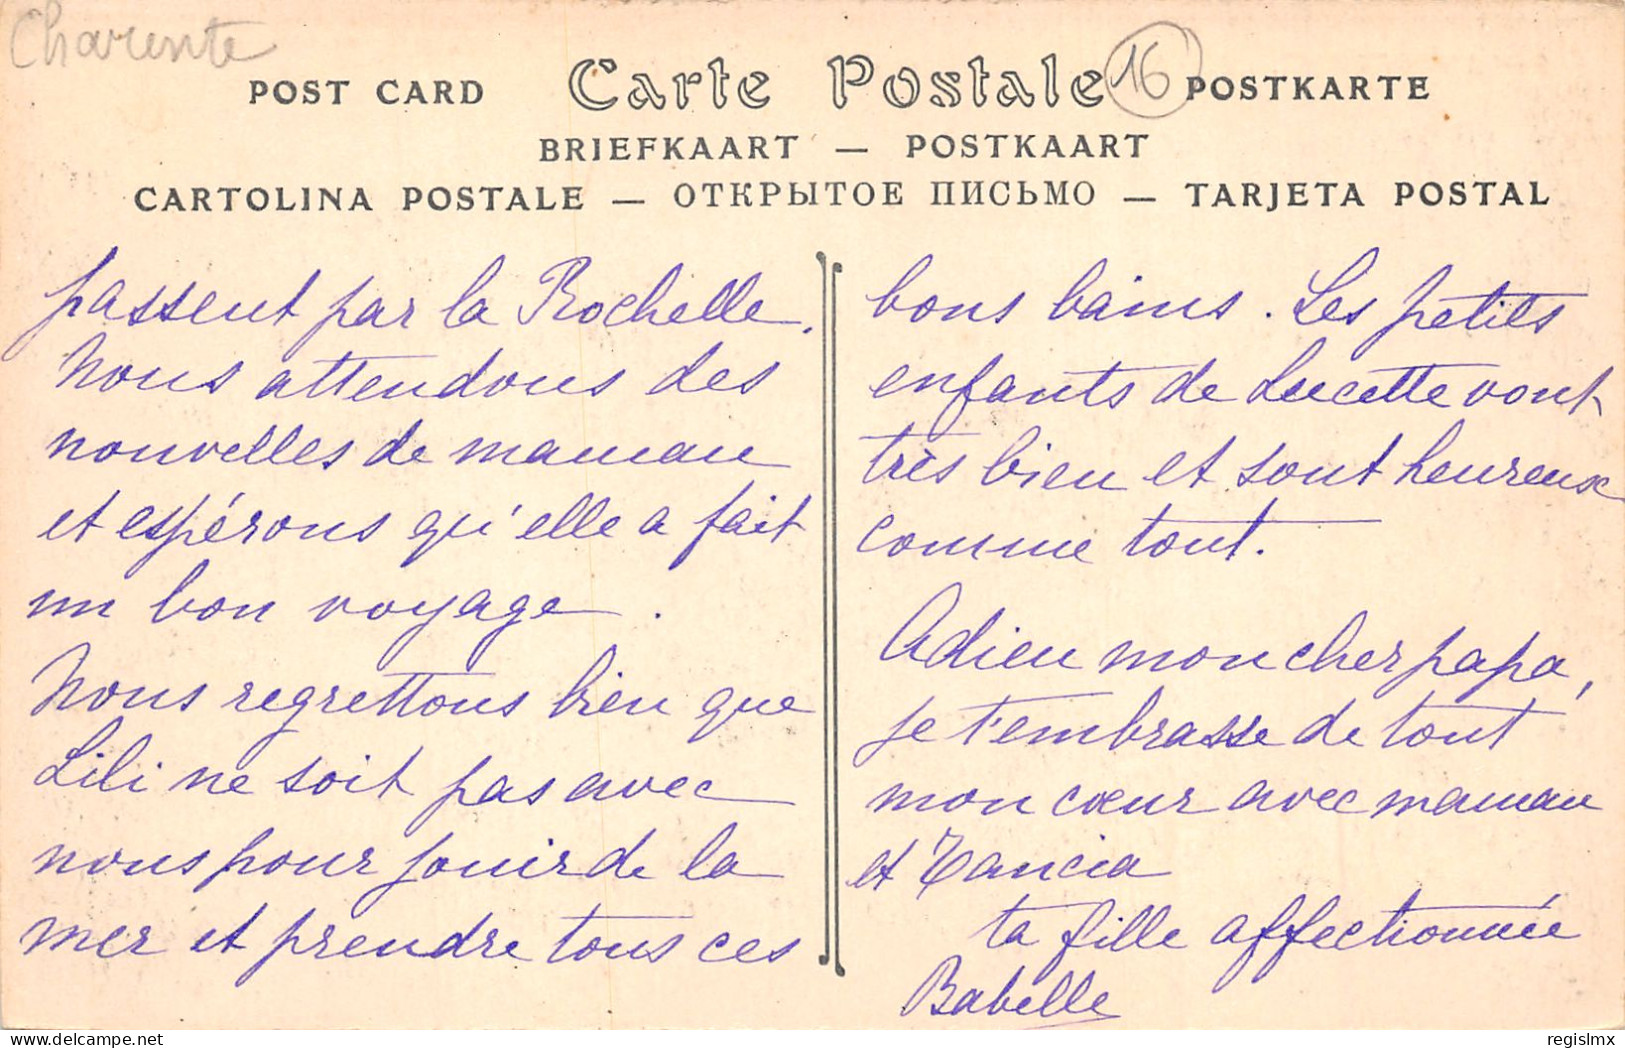 Charente
16
POST CARD Carte Postale POSTKARTE
BRIEFKAART — POSTKAART
CARTOLINA POSTALE — ОТКРЫТОЕ ПИСЬМО — TARJETA POSTAL
passent par la Rochelle.
Nous attendons des
nouvelles de maman
et espérons qu'elle a fait
un bon voyage.
Nous regrettons bien que
Lili ne soit pas avec
nous pour jouir de la
mer et prendre tous ces
bons bains. Les petits
enfants de Lucette vont
très bien et sont heureux
comme tout.
Adieu mon cher papa,
je t'embrasse de tout
mon cœur avec maman
et Tancia
ta fille affectionnée
Babelle
regislmx